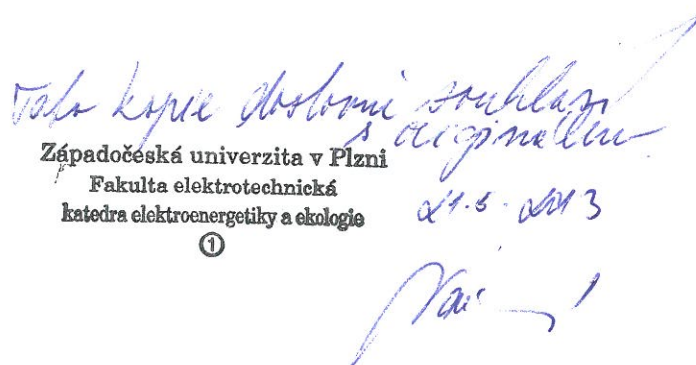 Tato kopie doslovně souhlasí
s originálem
Západočeská univerzita v Plzni
Fakulta elektrotechnická
katedra elektroenergetiky a ekologie
21.5.2013
①